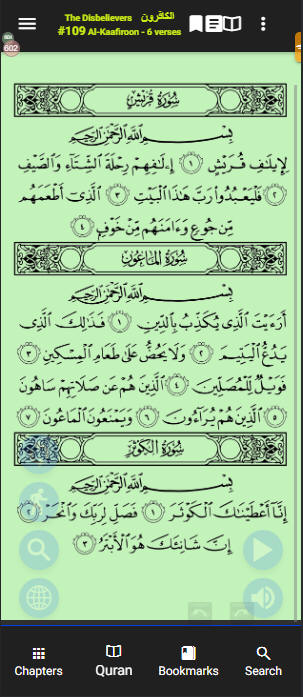 The Disbelievers الكافرون
#109 Al-Kaafiroon - 6 verses
602
سُورَةُ قُرَيْشٍ
بِسْمِ ٱللَّهِ ٱلرَّحْمَٰنِ ٱلرَّحِيمِ
لِإِيلَٰفِ قُرَيْشٍ ١ إِۦلَٰفِهِمْ رِحْلَةَ ٱلشِّتَآءِ وَٱلصَّيْفِ
٢ فَلْيَعْبُدُوا۟ رَبَّ هَٰذَا ٱلْبَيْتِ ٣ ٱلَّذِىٓ أَطْعَمَهُم
مِّن جُوعٍ وَءَامَنَهُم مِّنْ خَوْفٍۭ ٤
سُورَةُ المَاعُونِ
بِسْمِ ٱللَّهِ ٱلرَّحْمَٰنِ ٱلرَّحِيمِ
أَرَءَيْتَ ٱلَّذِى يُكَذِّبُ بِٱلدِّينِ ١ فَذَٰلِكَ ٱلَّذِى
يَدُعُّ ٱلْيَتِيمَ ٢ وَلَا يَحُضُّ عَلَىٰ طَعَامِ ٱلْمِسْكِينِ ٣
فَوَيْلٌ لِّلْمُصَلِّينَ ٤ ٱلَّذِينَ هُمْ عَن صَلَاتِهِمْ سَاهُونَ
٥ ٱلَّذِينَ هُمْ يُرَآءُونَ ٦ وَيَمْنَعُونَ ٱلْمَاعُونَ ٧
سُورَةُ الكَوْثَرِ
بِسْمِ ٱللَّهِ ٱلرَّحْمَٰنِ ٱلرَّحِيمِ
إِنَّآ أَعْطَيْنَٰكَ ٱلْكَوْثَرَ ١ فَصَلِّ لِرَبِّكَ وَٱنْحَرْ ٢
إِنَّ شَانِئَكَ هُوَ ٱلْأَبْتَرُ ٣
Chapters Quran Bookmarks Search